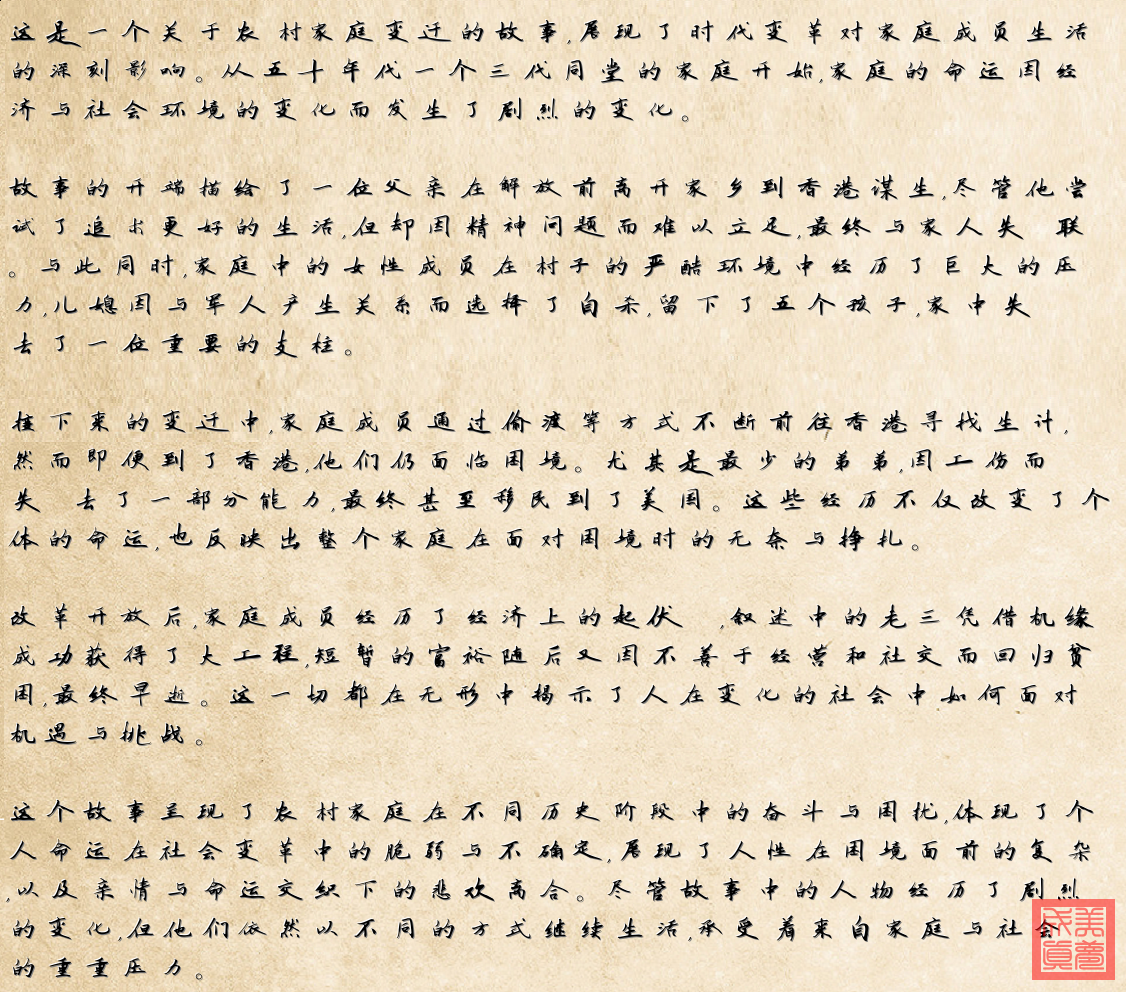 这是一个关于农村家庭变迁的故事,展现了时代变革对家庭成员生活
的深刻影响。从五十年代一个三代同堂的家庭开始,家庭的命运因经
济与社会环境的变化而发生了剧烈的变化。
故事的开端描绘了一位父亲在解放前离开家乡到香港谋生,尽管他尝
试了追求更好的生活,但却因精神问题而难以立足,最终与家人失 联
。与此同时,家庭中的女性成员在村子的严酷环境中经历了巨大的压
力,儿媳因与军人产生关系而选择了自杀,留下了五个孩子,家中失
去了一位重要的支柱。
接下来的变迁中,家庭成员通过偷渡等方式不断前往香港寻找生计,
然而即便到了香港,他们仍面临困境。尤其是最少的弟弟,因工伤而
失 去了一部分能力,最终甚至移民到了美国。这些经历不仅改变了个
体的命运,也反映出整个家庭在面对困境时的无奈与挣扎。
改革开放后,家庭成员经历了经济上的起伏 ,叙述中的老三凭借机缘
成功获得了大工程,短暂的富裕随后又因不善于经营和社交而回归贫
困,最终早逝。这一切都在无形中揭示了人在变化的社会中如何面对
机遇与挑战。
这个故事呈现了农村家庭在不同历史阶段中的奋斗与困扰,体现了个
人命运在社会变革中的脆弱与不确定,展现了人性在困境面前的复杂
,以及亲情与命运交织下的悲欢离合。尽管故事中的人物经历了剧烈
的变化,但他们依然以不同的方式继续生活,承受着来自家庭与社会
的重重压力。
美梦成真